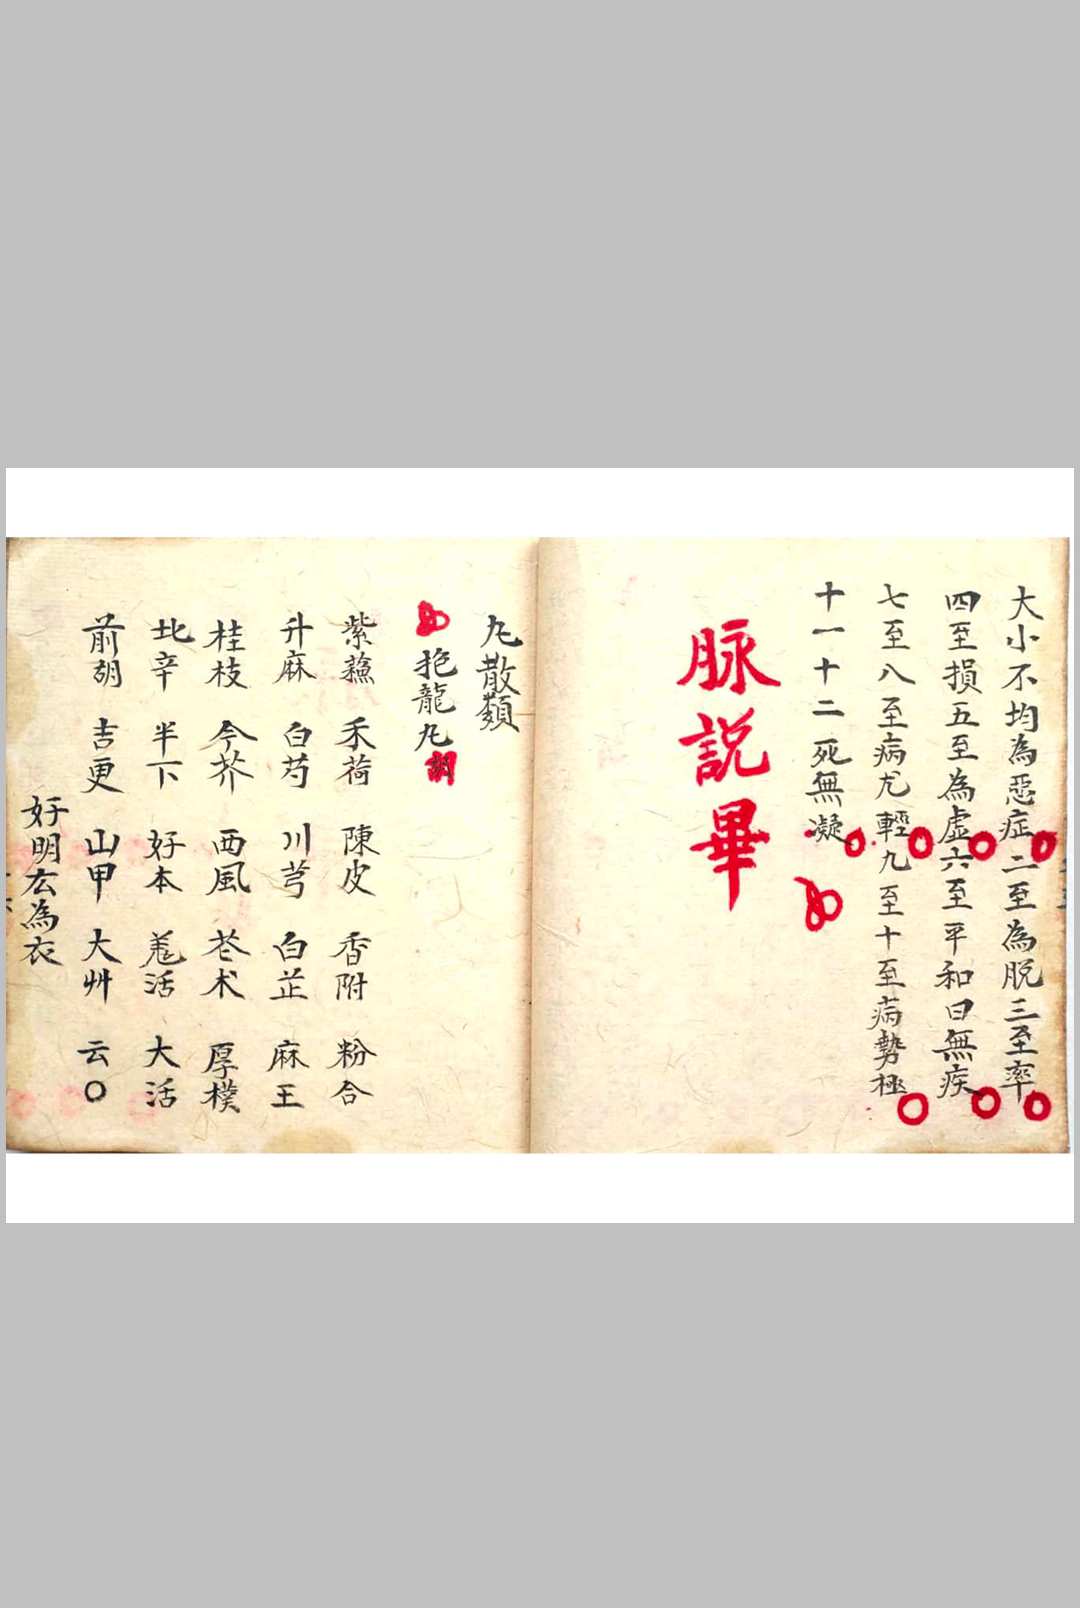 大小不均為惡症二至為脱三至率
四至損五至為虛六至平和曰無疾
七至八至病尤輕九至十至病勢極
十一十二死無凝
脉説畢
丸散類
抱龍丸
紫蘓 禾荷 陳皮 香附 粉合
升麻 白芍 川芎 白芷 麻王
桂枝 今芥 西風 苍术 厚樸
北辛 半下 好本 羗活 大活
前胡 吉更 山甲 大艸 云〇
好明厷為衣